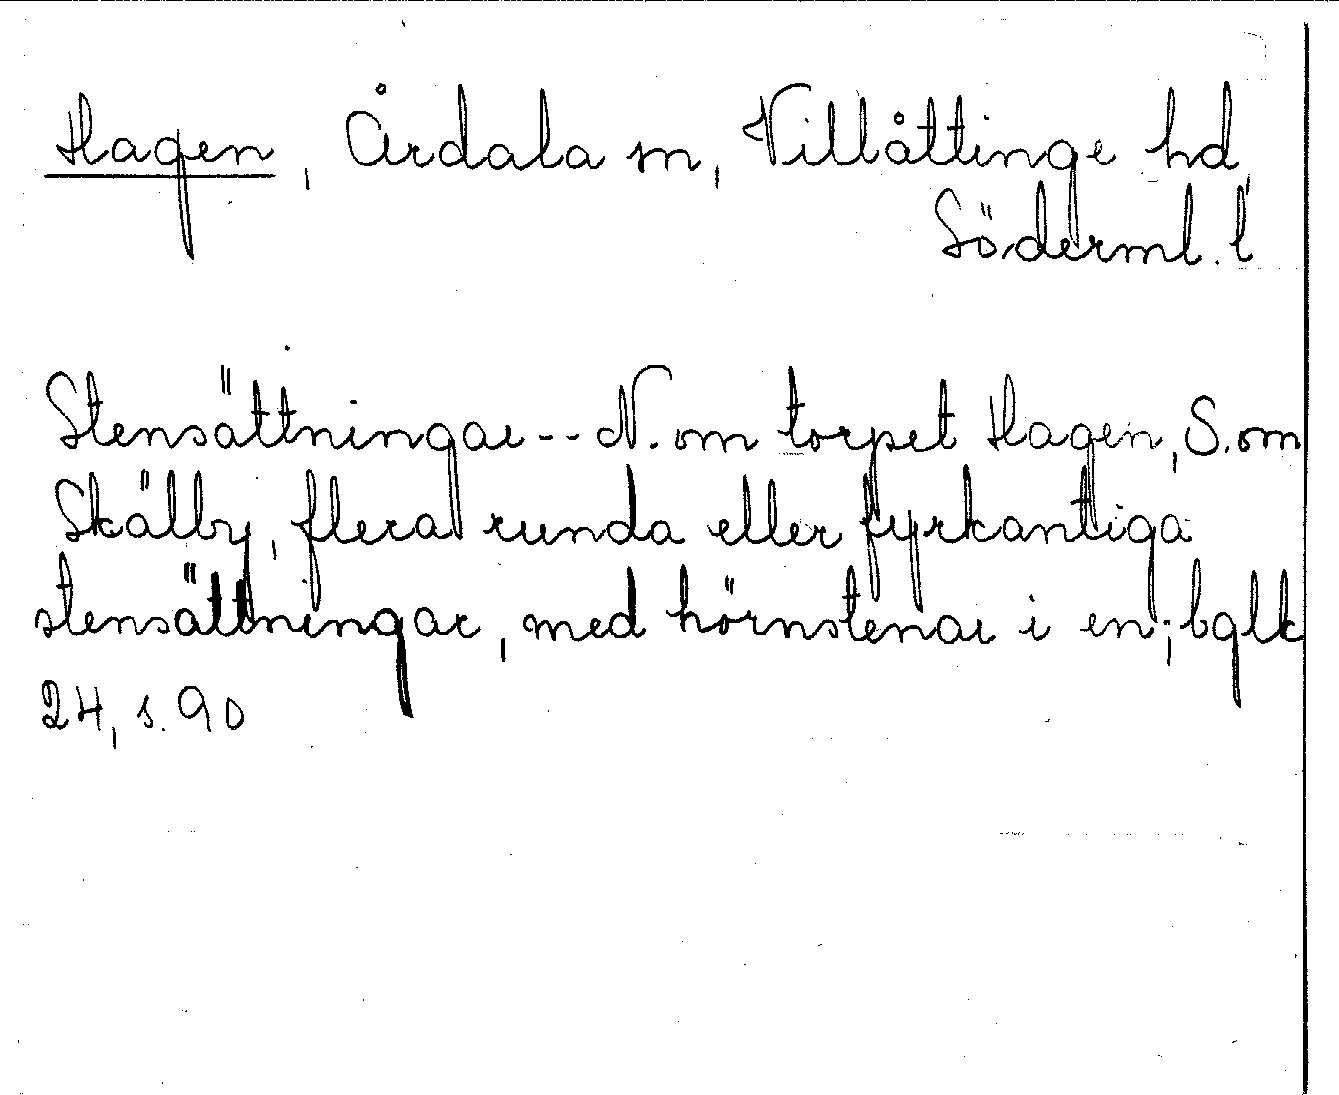 Hagen, Årdala sn, Villåttinge hd,
Söderml. l
Stensättningar -- N. om torpet Hagen, S. om
Skälby, flera runda eller fyrkantiga
stensättningar, med hörnstenar i en; bglk
24, s. 90